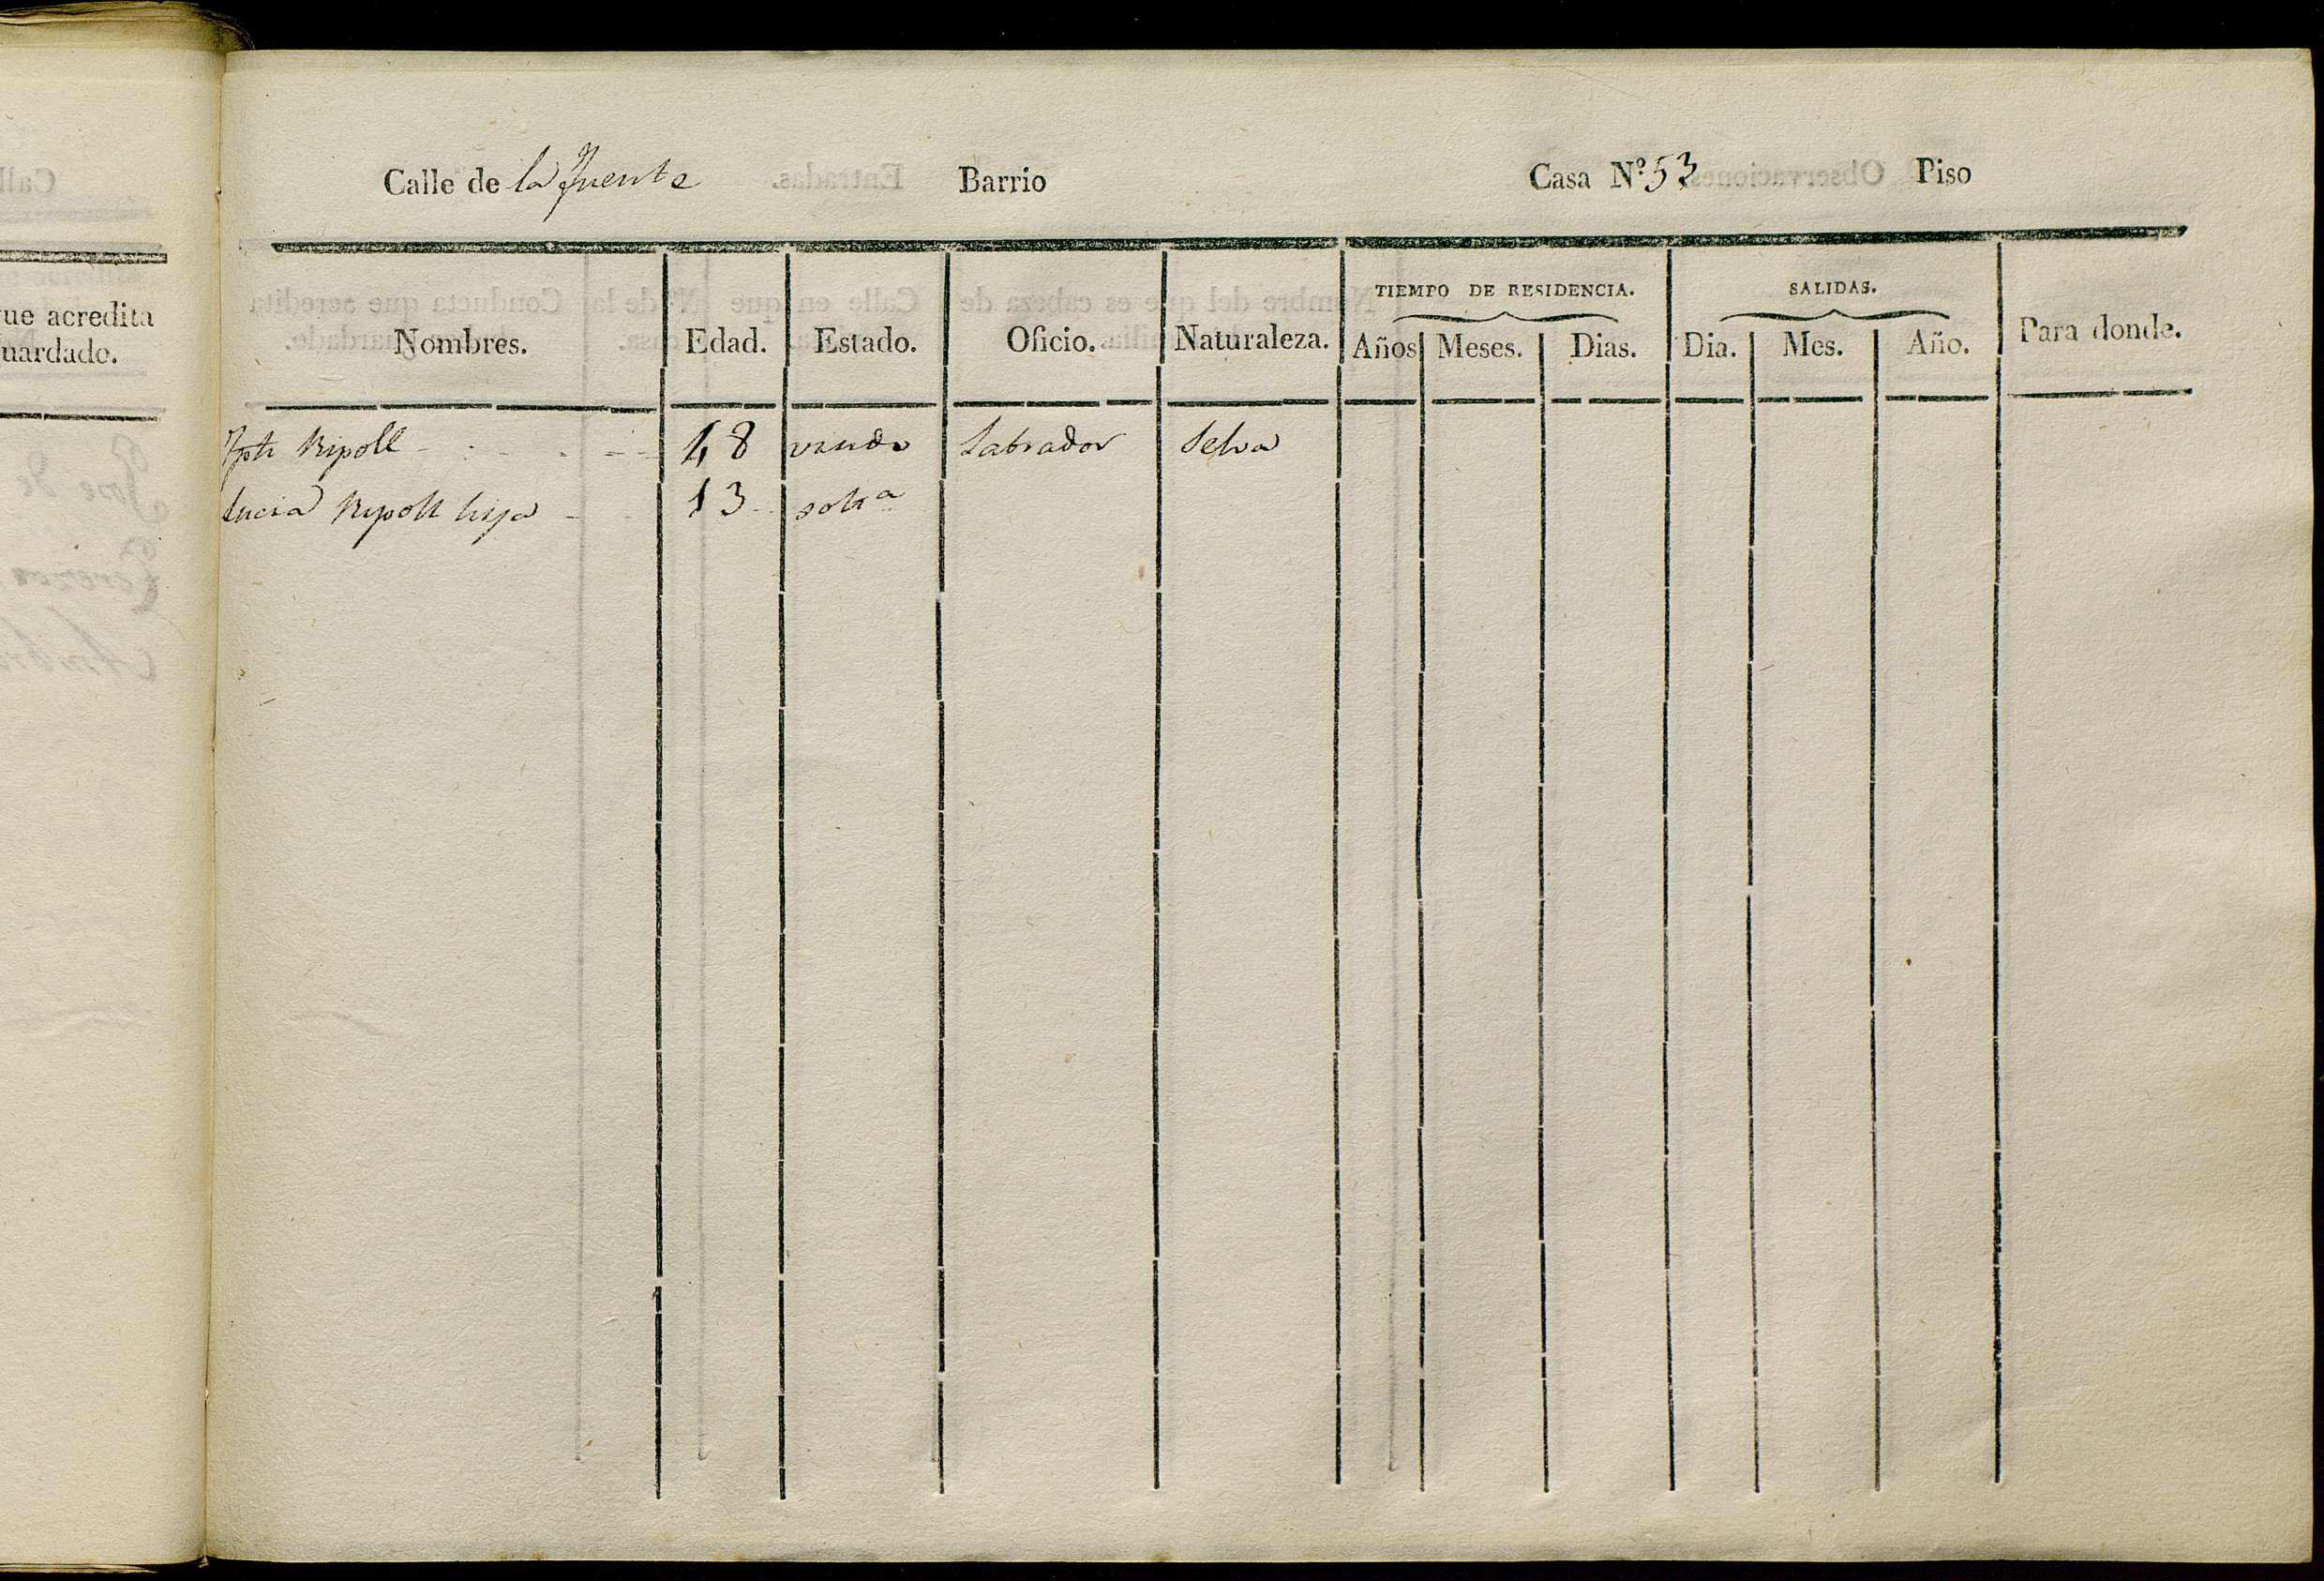 Calle de la Fuente Barrio Casa N.º 53 Piso
TIEMPO DE RESIDENCIA. SALIDAS.
Nombres. Edad. Estado. Oficio. Naturaleza. Años Meses. Dias. Dia. Mes. Año. Para donde.
Ripoll 48 viudo Labrador Selva
Lucia Ripoll hija 13 soltª
que acredita
uardado.